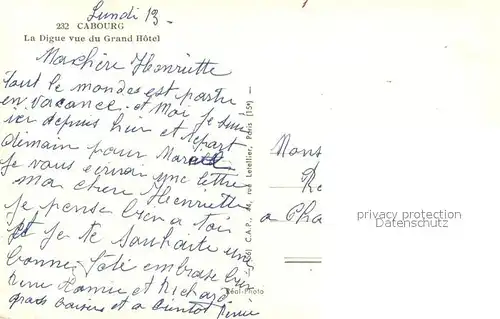 Lundi 13
232 CABOURG
La Digue vue du Grand Hôtel
Ma chère Henriette
Tout le mondes est partre
en vacance et Moi je suis
ici depuis hier et repart
demain pour
je vous écrirai une lettre
ma chère Henriette
je pense bien a toi
et je te souhaite une
bonne embrase bien
et Richard
gros baisers et a bientot
Real-Photo
C.A.P., rue Letellier, Paris (15e)
Mons
a Cha
privacy protection
Datenschutz